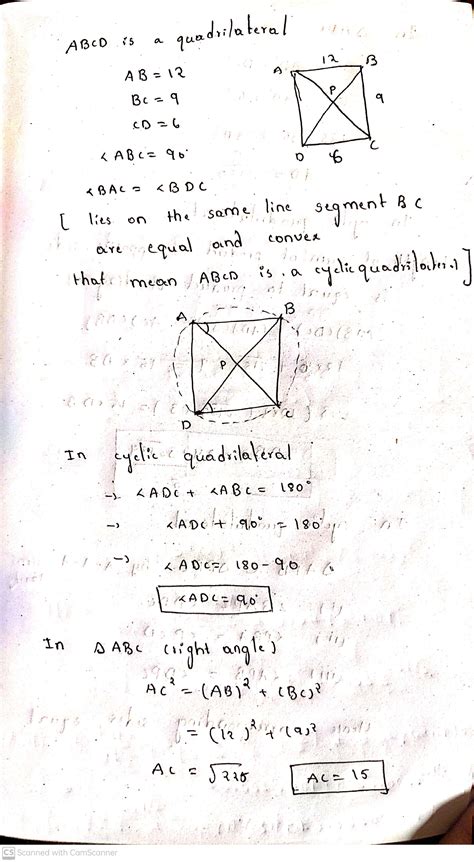 ABCD is a quadrilateral
AB = 12
BC = 9
CD = 6
∠ABC = 90°
∠BAC = ∠BDC
A 12 B
P 9
D 6 C
[ lies on the same line segment BC
are equal and convex
that mean ABCD is a cyclic quadrilateral ]
A B
P
D C
In cyclic quadrilateral
→ ∠ADC + ∠ABC = 180°
→ ∠ADC + 90° = 180°
→ ∠ADC = 180 - 90
∠ADC = 90°
In △ABC (right angle)
AC² = (AB)² + (BC)²
= (12)² + (9)²
AC = √225 AC = 15
CS Scanned with CamScanner